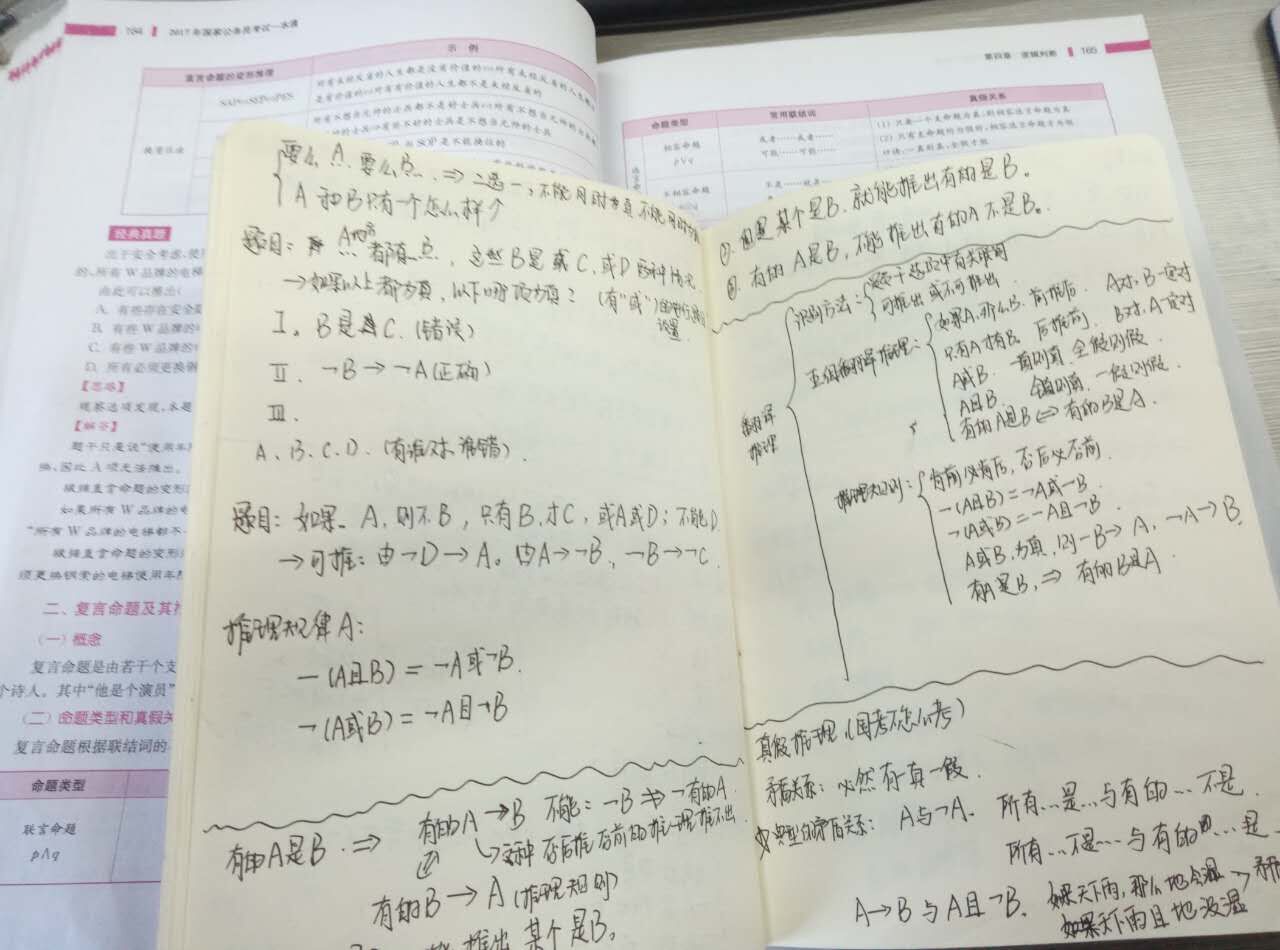 164 2017年国家公务员考试一本通
示 例
直言命题的变形推理
SAP⇔SEP⇔PES
所有未经反省的人生都是没有价值的⇔所有未经反省的人生都不
是有价值的⇔所有有价值的人生都不是未经反省的
所有不想当元帅的士兵都不是好士兵⇔所有不想当元帅的士兵都
是不能换位的
经典真题
出于安全考虑,使用
的,所有W品牌的电梯
由此可以推出(
A. 有些存在安全隐
B. 有些W品牌的
C. 有些W品牌的
D. 所有必须更换钢
【思路】
观察选项发现,本题
【解答】
题干只是说“使用年
换,因此A项无法推出。
根据直言命题的变形
如果所有W品牌的电
“所有W品牌的电梯都不
根据直言命题的变形
须更换钢索的电梯使用年
二、复言命题及其推
(一)概念
复言命题是由若干个支
个诗人。其中“他是个演员”
(二)命题类型和真假关
复言命题根据联结词的
命题类型
联言命题
p∧q
第四章 逻辑判断 165
命题类型 常用联结词 真假关系
相容命题
p∨q
或者……或者……
可能……可能……
(1)只要一个支命题为真,则相容选言命题为真
(2)只有支命题均为假时,相容选言命题才为假
口诀:一真则真,全假才假
不相容命题
要么A,要么B ⇒ 二选一,不能同时为真,不能同时为假
A和B只有一个怎么样个
题目: A 都有 B,这些B是或C,或D两种情况
→如果以上都为真,以下哪项为真? (有“或”)
设置
Ⅰ. B是C.(错误)
Ⅱ. ¬B→¬A(正确)
Ⅲ.
A、B、C、D.(有谁对、谁错).
题目: 如果 A,则不B,只有B,才C,或A或D;不能D
→可推:由¬D→A。由A→¬B,¬B→¬C
推理规律A:
¬(A且B)=¬A或¬B.
¬(A或B)=¬A且¬B
有的A是B.⇒ 有的A→B 不能:¬B⇏¬有的A
这种否后推否前的推理推不出
有的B→A(推理规则)
推出某个是B。
①. 但是某个是B,就能推出有的是B。
②. 有的A是B,不能推出有的A不是B。
翻译推理
识别方法: 题干选项中有关联词
可推出或不可推出
五组翻译推理:
如果A,那么B. 前推后. A对,B一定对
只有A才有B. 后推前. B对,A一定对
A或B. 一真则真,全假则假
A且B. 全真则真,一假则假.
有的A是B⇔有的B是A.
推理规则:
肯前必肯后,否后必否前.
¬(A且B)=¬A或¬B.
¬(A或B)=¬A且¬B
A或B,为真,则¬B→A,¬A→B
有A是B,⇒ 有的B是A
真假推理(国考不怎么考)
矛盾关系:必然有一真一假.
典型的矛盾关系: A与¬A. 所有…是…与有的…不是.
所有…不是…与有的…是
A→B与A且¬B. 如果天下雨,那么地会湿
如果天下雨且地没湿